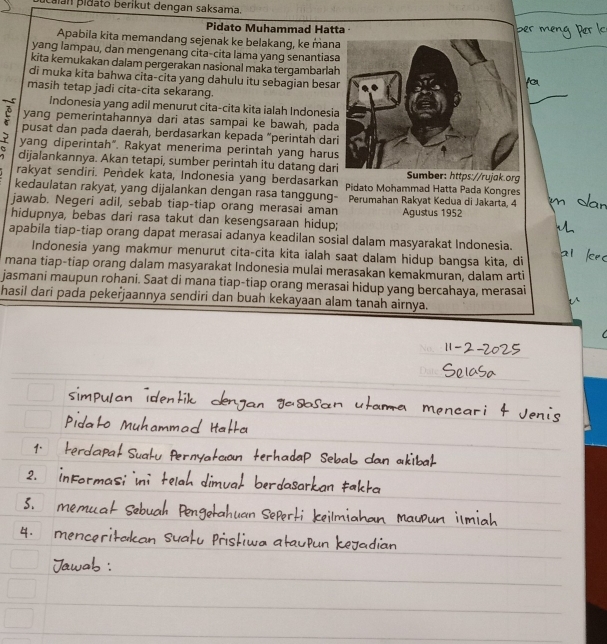 pidato berikut dengan saksama.
Pidato Muhammad Hatta
Apabila kita memandang sejenak ke belakang, ke mana
yang lampau, dan mengenang cita-cita lama yang senantiasa
kita kemukakan dalam pergerakan nasional maka tergambarlah
di muka kita bahwa cita-cita yang dahulu itu sebagian besar
masih tetap jadi cita-cita sekarang.
Indonesia yang adil menurut cita-cita kita ialah Indonesia
yang pemerintahannya dari atas sampai ke bawah, pada
pusat dan pada daerah, berdasarkan kepada "perintah dari
yang diperintah". Rakyat menerima perintah yang harus
dijalankannya. Akan tetapi, sumber perintah itu datang dari
rakyat sendiri. Pendek kata, Indonesia yang berdasarkan
kedaulatan rakyat, yang dijalankan dengan rasa tanggung-
jawab. Negeri adil, sebab tiap-tiap orang merasai aman
hidupnya, bebas dari rasa takut dan kesengsaraan hidup;
apabila tiap-tiap orang dapat merasai adanya keadilan sosial dalam masyarakat Indonesia.
Indonesia yang makmur menurut cita-cita kita ialah saat dalam hidup bangsa kita, di
mana tiap-tiap orang dalam masyarakat Indonesia mulai merasakan kemakmuran, dalam arti
jasmani maupun rohani. Saat di mana tiap-tiap orang merasai hidup yang bercahaya, merasai
hasil dari pada pekerjaannya sendiri dan buah kekayaan alam tanah airnya.
Sumber: https://rujak.org
Pidato Mohammad Hatta Pada Kongres
Perumahan Rakyat Kedua di Jakarta, 4
Agustus 1952
satu arah
meng per
dan
al
11-2-2025
Selasa
simpulan identik dengan gasasan utama mencari 4 Jenis
Pidato Muhammad Hatta
1. terdapat suatu Pernyataan terhadap Sebab dan akibat
2. informasi ini telah dimuat berdasarkan fakta
3. memuat sebuah Pengetahuan seperti keilmiahan maupun ilmiah
4. menceritakan suatu Pristiwa ataupun kejadian
Jawab: